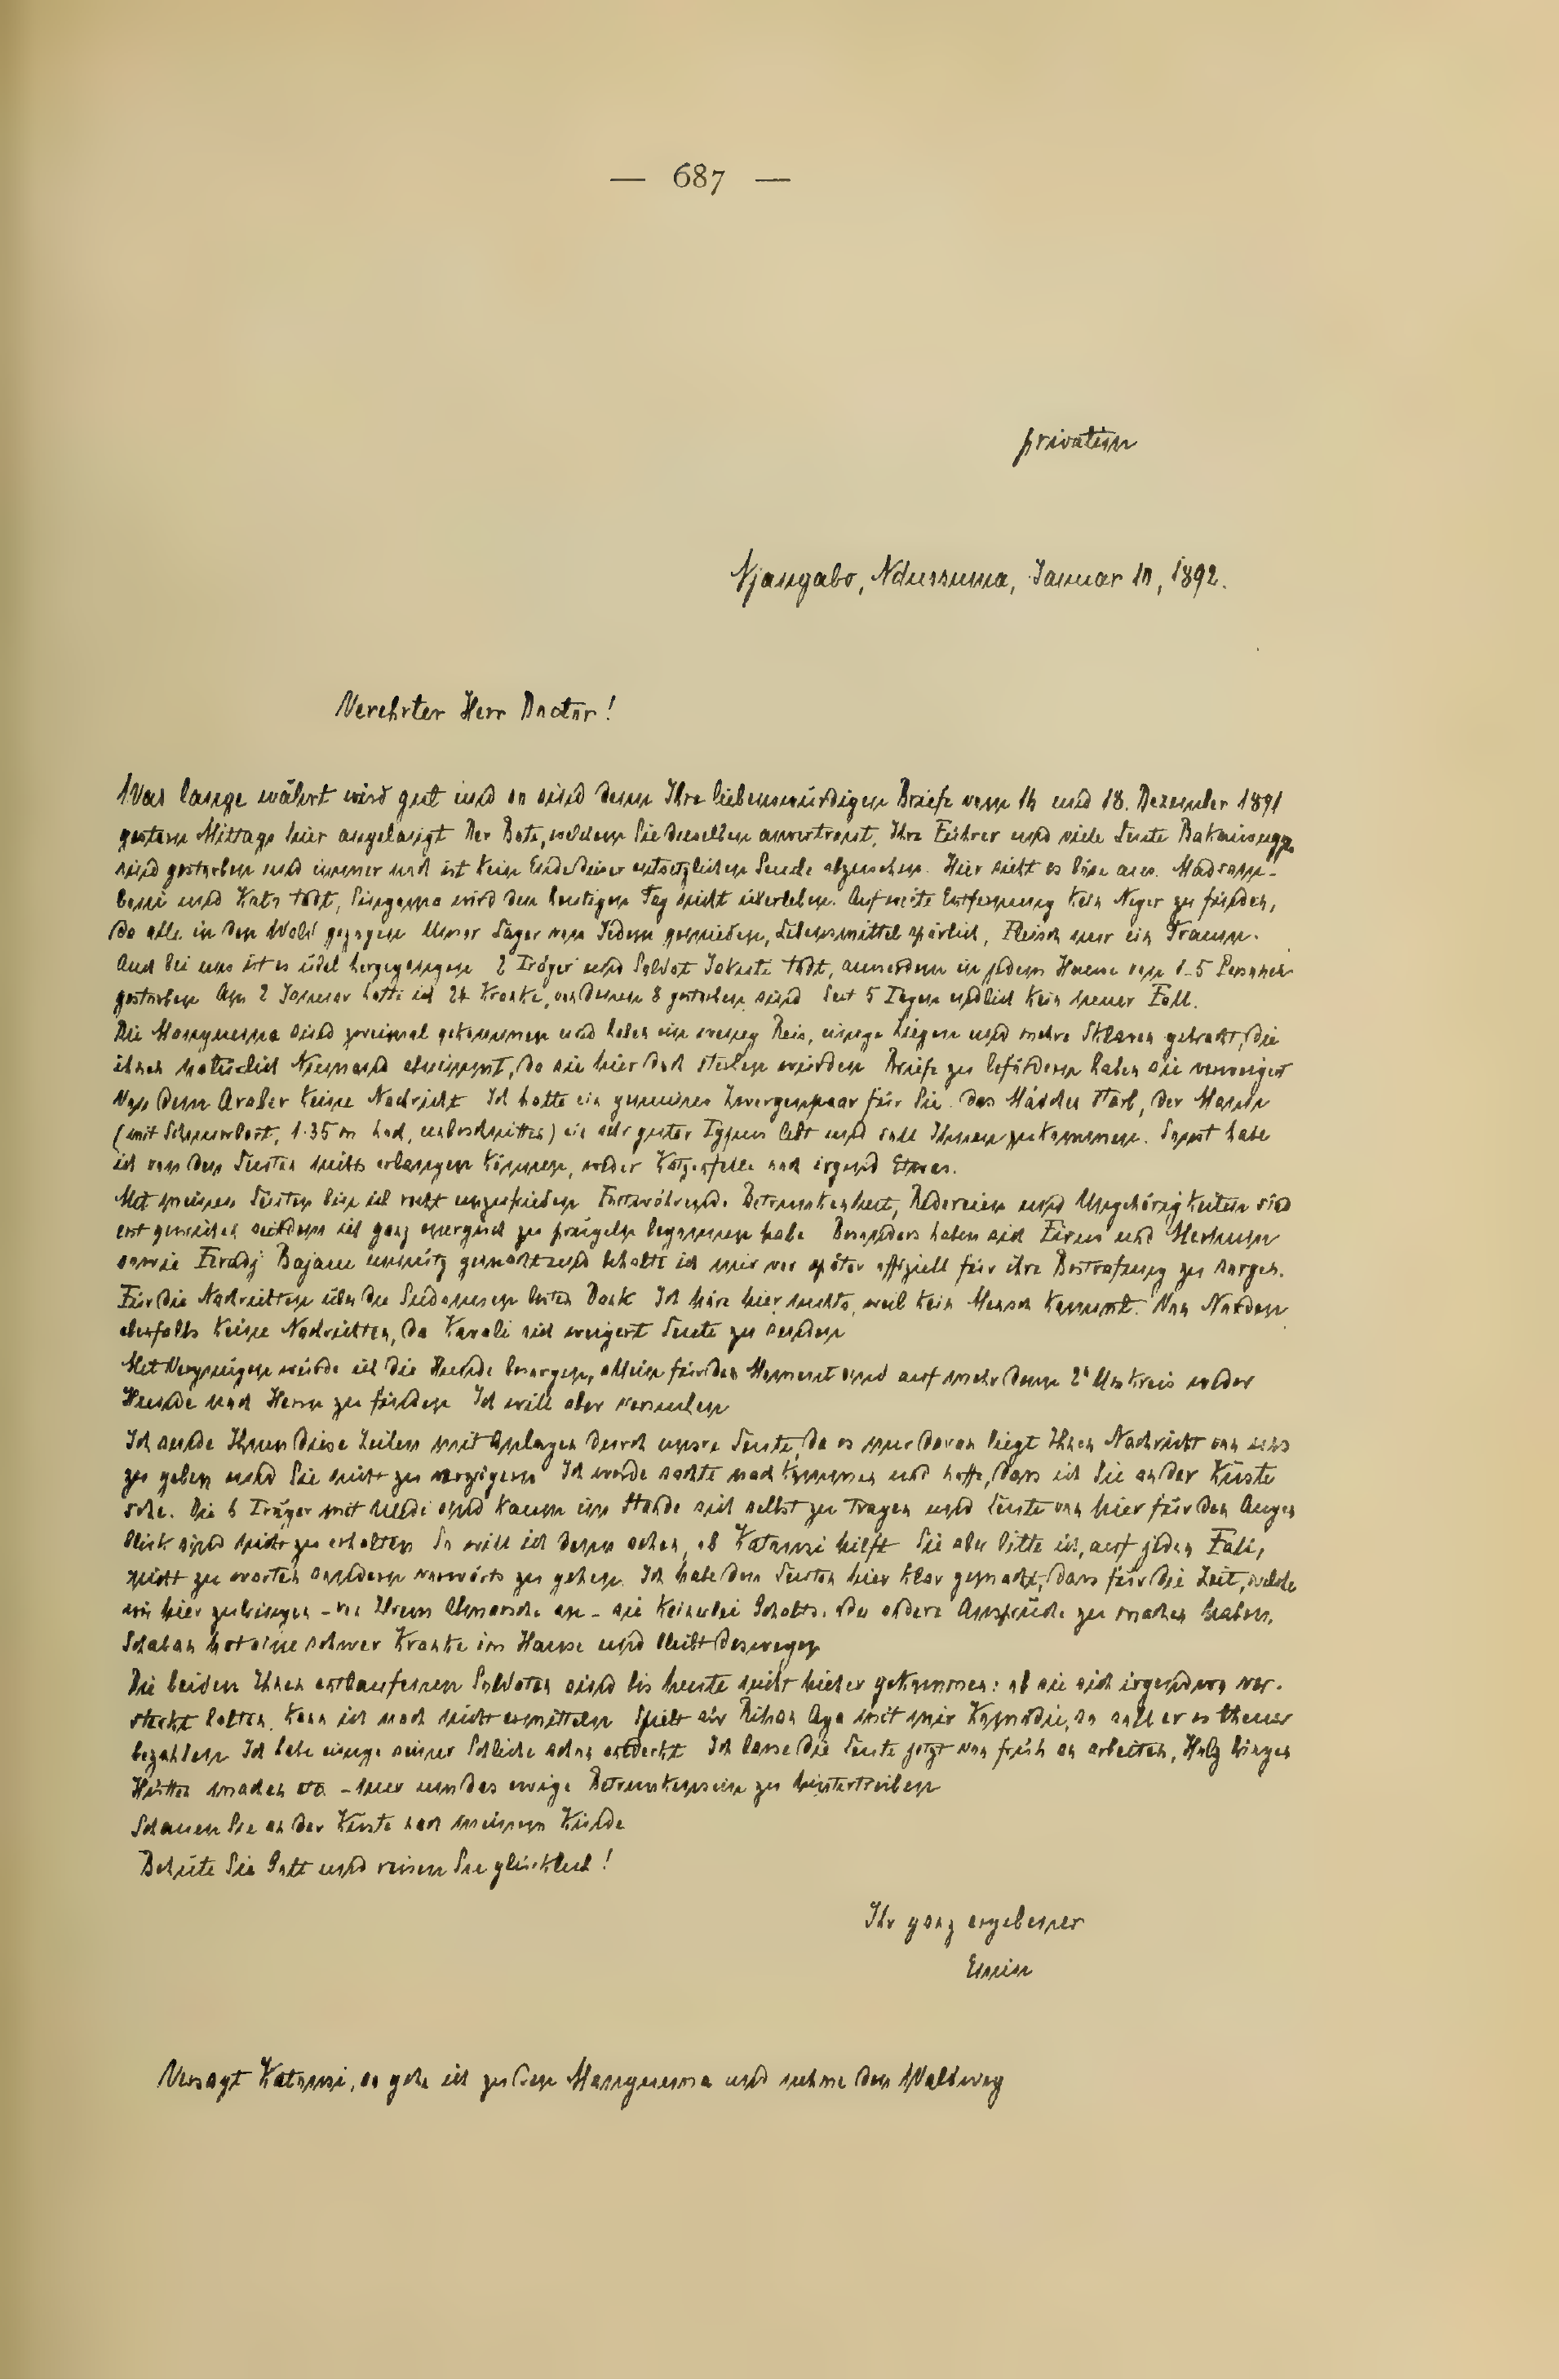 — 687 —
privatim
Njangabo, Ndussuma, Januar 10, 1892.
Verehrter Herr Doctor!
Was lange währt wird gut und so sind denn Ihre liebenswürdigen Briefe vom 14 und 18. Dezember 1891
gestern Mittags hier angelangt Der Bote, welchem Sie dieselben anvertraut, Ihre Führer und viele Leute
sind gestorben und immer noch ist kein Ende dieser entsetzlichen Seuche abzusehen. Hier sieht es böse aus.
und Kato todt, wird den heutigen Tag nicht überleben. Auf weite Entfernung kein Neger zu finden,
da alle in den Wald gezogen Unser Lager von Jedem gemieden, Lebensmittel spärlich, Fleisch nur ein Traum.
Auch bei uns ist es übel hergegangen 2 Träger und Soldat todt, ausserdem in jedem Hause von 1-5 Personen
gestorben Am 2 Januar hatte ich 24 Kranke, von denen 8 gestorben sind Seit 5 Tagen endlich kein neuer Fall.
Die Manyuema sind zweimal gekommen und haben ein wenig Reis, einige Ziegen und mehre Sklaven gebracht, die
ihnen natürlich Niemand abnimmt, da sie hier doch sterben würden Briefe zu befördern haben sie verweigert
Von dem Araber keine Nachricht Ich hatte ein Zwergenpaar für Sie das Mädchen starb, der Mann
(mit Schnurrbart, 1.35 m hoch, unbeschnitten) ein sehr guter Typus lebt und soll Ihnen zukommen. Sonst habe
ich von den Leuten nichts erlangen können, weder Katzenfelle noch irgend Etwas.
Mit meinen Leuten bin ich recht unzufrieden Fortwährende Betrunkenheit, Redereien und Ungehörigkeiten sind
erst gewichen seitdem ich ganz energisch zu prügeln begonnen habe Besonders haben sich und
sowie Feradj unnütz gemacht und behalte ich mir vor später offiziell für ihre Bestrafung zu sorgen.
Für die Nachrichten über die Sudanesen besten Dank Ich höre hier nichts, weil kein Mensch kommt. Von Norden
ebenfalls keine Nachrichten, da Kavali sich weigert Leute zu senden
Mit Vergnügen würde ich die Hunde besorgen, allein für den Moment sind auf mehr denn Umkreis weder
Hunde noch Herrn zu finden Ich will aber versuchen
Ich sende Ihnen diese Zeilen mit Anlagen durch unsre Leute, da es mir daran liegt Ihnen Nachricht von uns
zu geben und Sie nicht zu verzögern Ich werde sachte nach kommen und hoffe, dass ich Sie an der Küste
sehe. Die 6 Träger mit sind kaum im Stande sich selbst zu tragen und Leute von hier für den Augen
blick sind nicht zu erhalten So will ich denn sehen, ob Katonzi hilft Sie aber bitte ich, auf jeden Fall,
nicht zu warten sondern vorwärts zu gehen. Ich habe den Leuten hier klar gemacht, dass für die Zeit, welche
wir hier zubringen - von Ihrem Abmarsche an - sie keinerlei Gehalts- oder andere Ansprüche zu machen haben.
Schaban hat eine schwer Kranke im Hause und bleibt deswegen
Die beiden Ihnen entlaufenen Soldaten sind bis heute nicht hieher gekommen: ob sie sich irgendwo ver-
steckt halten, kann ich noch nicht ermitteln Spielt aber Rihan Aga mit mir Komödie, so soll er es theuer
bezahlen Ich habe einige seiner Schliche schon entdeckt Ich lasse die Leute jetzt von früh an arbeiten, Holz bringen
Hütten machen etc. - nur um das ewige Betrunkensein zu hintertreiben
Schauen Sie an der Küste nach meinem Kinde
Behüte Sie Gott und reisen Sie glücklich!
Ihr ganz ergebener
Emin
Versagt Katonzi, so gehe ich zu den Manyuema und nehme den Waldweg